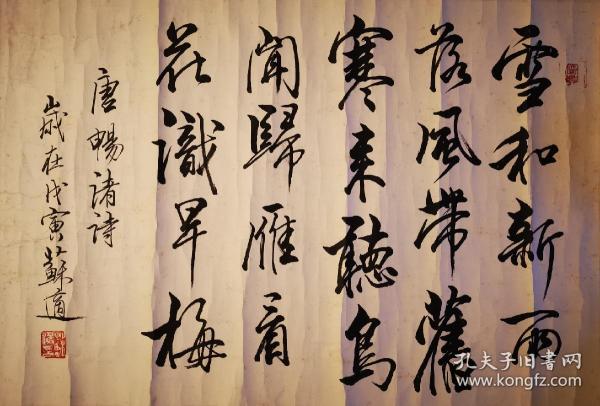 雪和新雨
落风带舊
寒来聽鳥
闻歸雁看
花識早梅
唐暢诸詩
歲在戊寅蘇適
孔夫子旧书网
www.kongfz.com